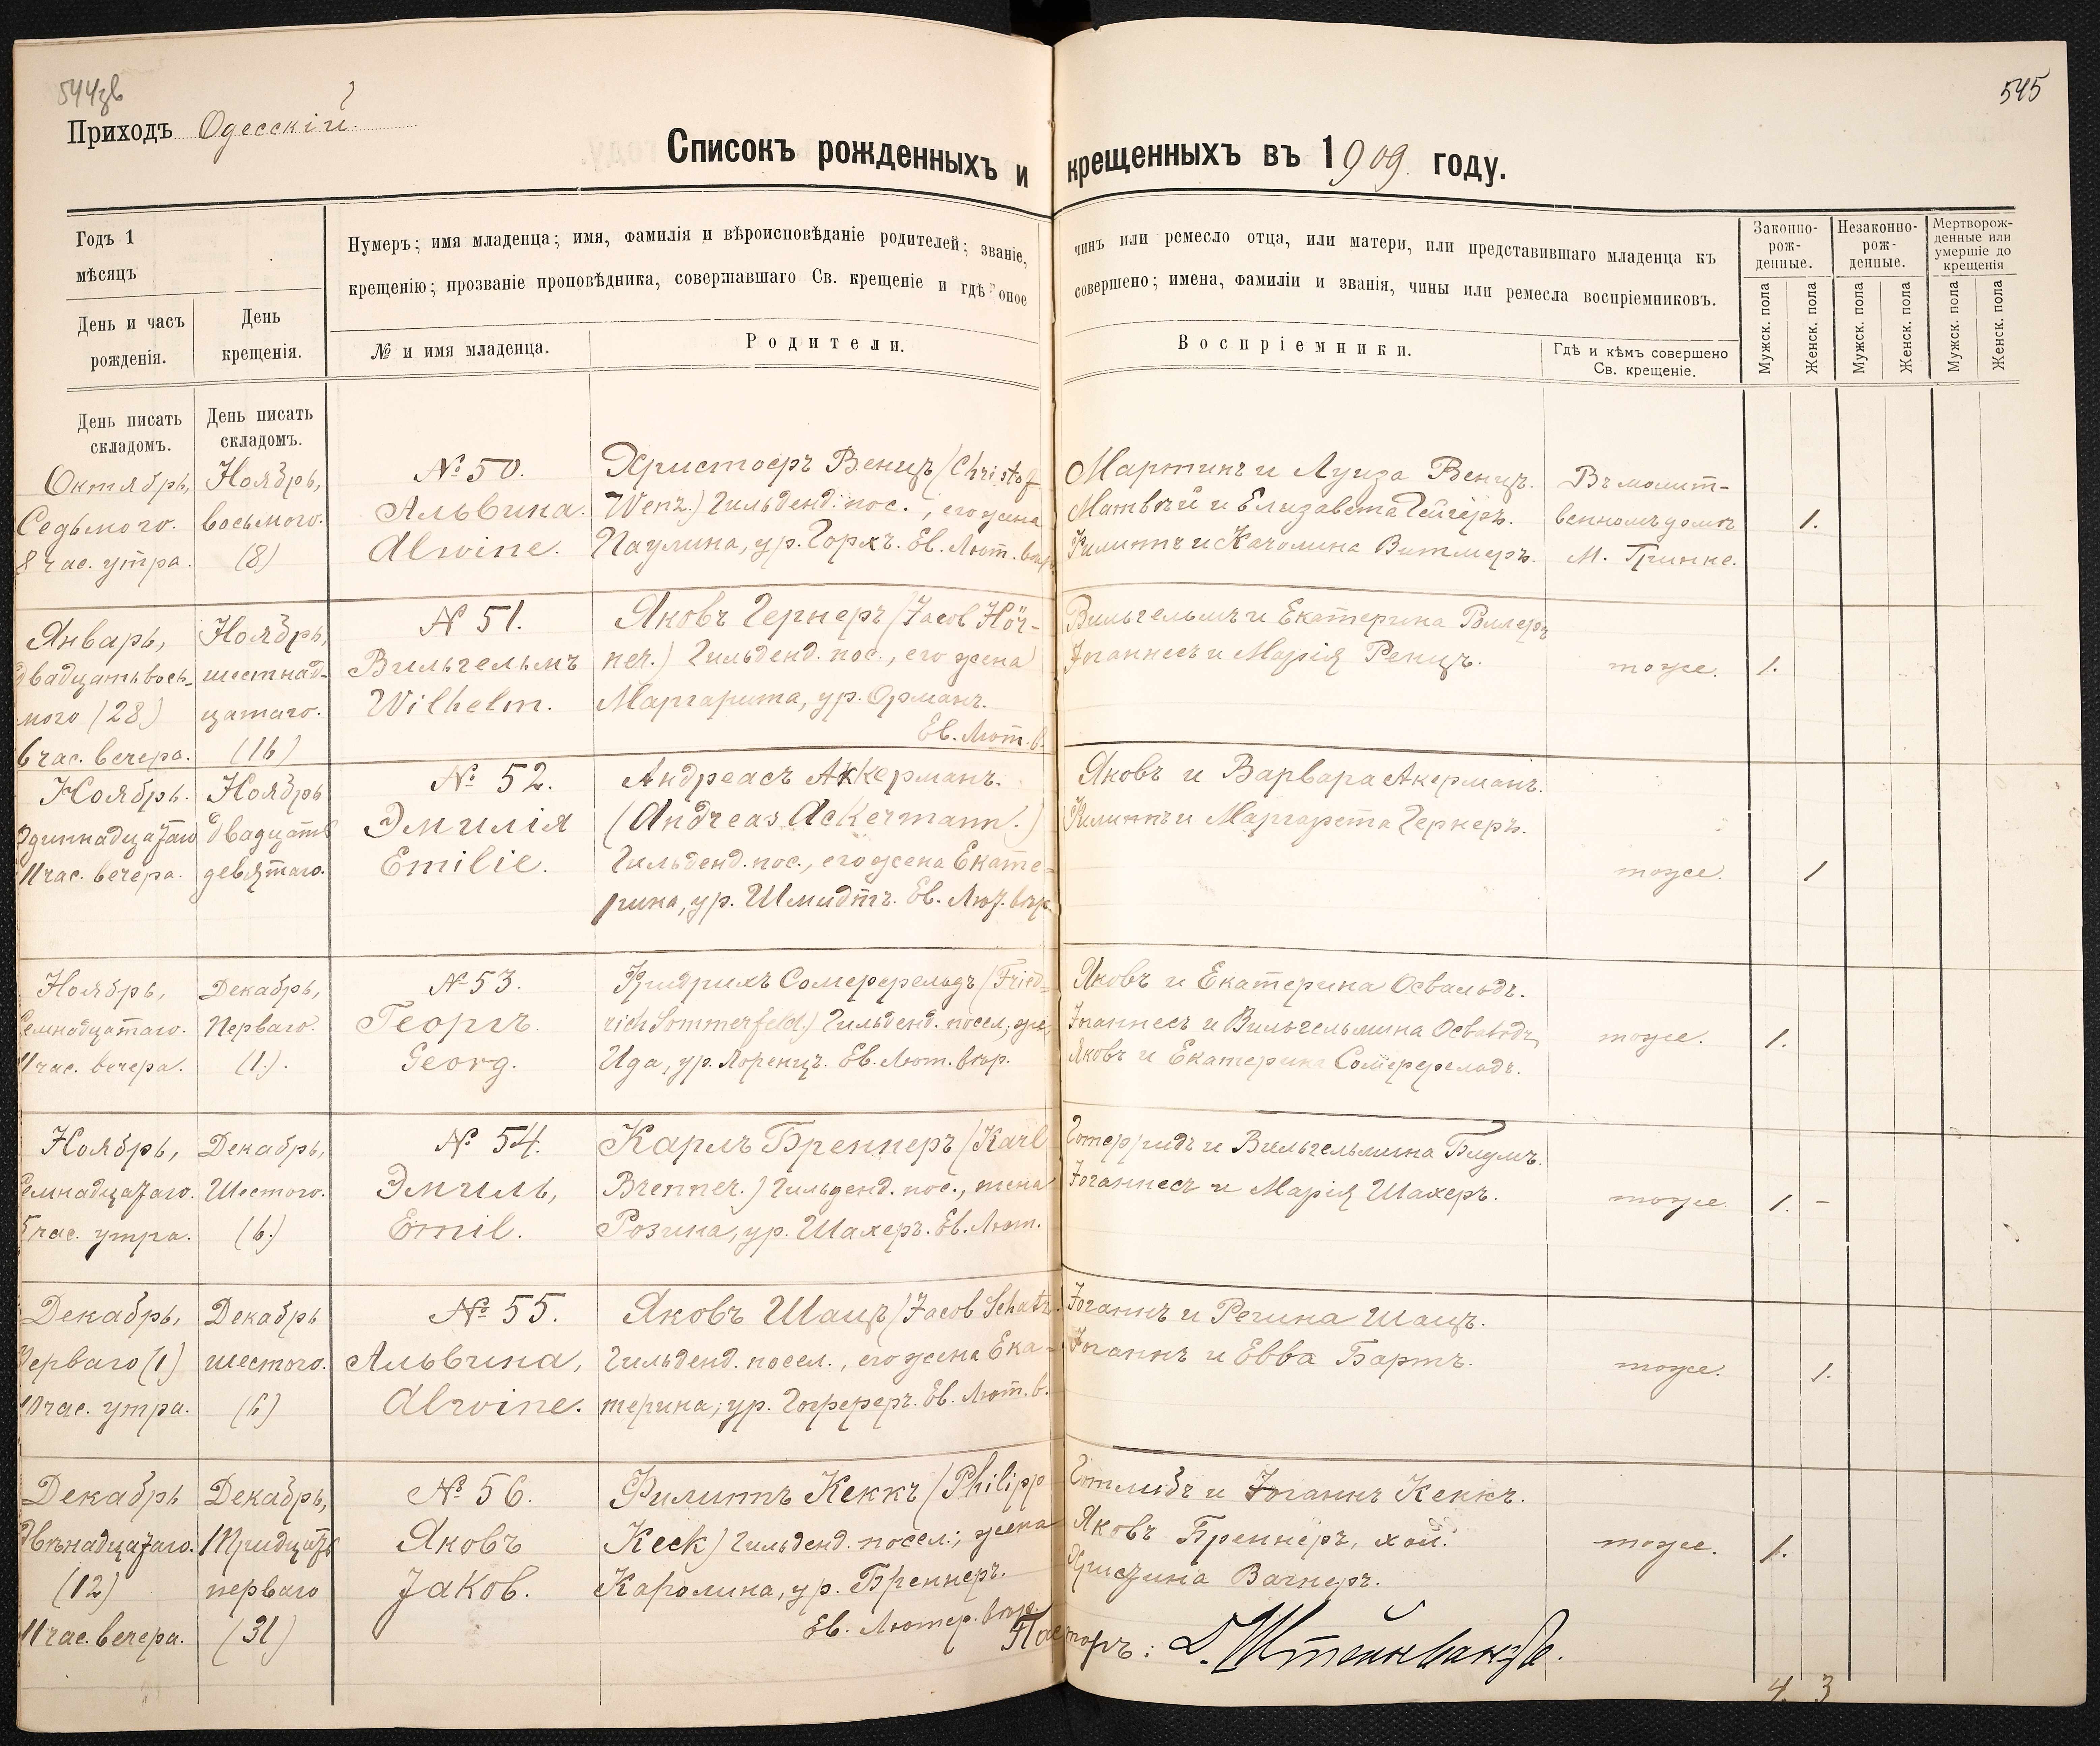 544зв
545
Приходъ Одесскій
Списокъ рожденныхъ и крещенныхъ въ 1909 году.
Годъ 1
мѣсяцъ
День и часъ
рожденія.
День
крещенія.
Нумеръ; имя младенца; имя, фамилія и вѣроисповѣданіе родителей; званіе, чинъ или ремесло отца, или матери, или представившаго младенца къ
крещенію; прозваніе проповѣдника, совершавшаго Св. крещеніе и гдѣ оное совершено; имена, фамиліи и званія, чины или ремесла воспріемниковъ.
№ и имя младенца.
Родители.
Воспріемники.
Гдѣ и кѣмъ совершено
Св. крещеніе.
Законно-
рож-
денные.
Незаконно-
рож-
денные.
Мертворож-
денные или
умершіе до
крещенія
Мужск. пола
Женск. пола
Мужск. пола
Женск. пола
Мужск. пола
Женск. пола
День писать
складомъ.
День писать
складомъ.
Октябрь,
Седьмого.
8 час. утра.
Ноябрь,
восьмого.
(8)
№ 50.
Альвина.
Alwine.
Христофъ Венцъ (Christof
Wenz.) Гильденд. пос., его жена
Паулина, ур. Горхъ. Ев. Лют. вѣр.
Мартинъ и Луиза Венцъ.
Матвѣй и Елизавета Гейгеръ.
Филиппъ и Каролина Витмеръ.
Въ молит-
венномъ домѣ
М. Гринке.
1.
Январь,
двадцатьвось-
мого (28)
6 час. вечера.
Ноябрь,
шестнад-
цатаго.
(16)
N 51.
Вильгельмъ
Wilhelm.
Яковъ Гернеръ (Jacob Hör-
ner.) Гильденд. пос., его жена
Маргарита, ур. Орманъ.
Ев. Лют. в.
Вильгельмъ и Екатерина
Іоаннесъ и Марія Ренцъ.
тоже.
1.
Ноябрь.
Одиннадцатаго
11 час. вечера.
Ноябрь
двадцать
девятаго.
№ 52.
Эмилія
Emilie.
Андреасъ Аккерманъ.
(Andreas Ackermann.)
Гильденд. пос., его жена Екате-
рина, ур. Шмидтъ. Ев. Лют. вѣр.
Яковъ и Варвара Акерманъ.
Филиппъ и Маргарета Гернеръ.
тоже.
1
Ноябрь,
Семнадцатаго.
11 час. вечера.
Декабрь,
Перваго.
(1.).
№ 53.
Георгъ.
Georg.
Фридрихъ Сомерфельдъ (Fried-
rich Sommerfeld.) Гильденд. посел., жена
Ида, ур. Лоренцъ. Ев. Лют. вѣр.
Яковъ и Екатерина Освальдъ.
Іоаннесъ и Вильгельмина Освальдъ
Яковъ и Екатерина Сомерфельдъ.
тоже.
1.
Ноябрь,
Семнадцатаго.
5 час. утра.
Декабрь,
Шестого.
(6.)
№ 54.
Эмиль,
Emil.
Карлъ Бреннеръ (Karl
Brenner.) Гильденд. пос., жена
Розина, ур. Шахеръ. Ев. Лют.
Готфридъ и Вильгельмина Блумъ.
Іоганнесъ и Марія Шахеръ.
тоже
1. -
Декабрь,
Перваго (1)
10 час. утра.
Декабрь
шестого.
(6)
№ 55.
Альвина,
Alwine.
Яковъ Шацъ (Jacob Schatz.
Гильденд. посел., его жена Ека-
терина, ур. Гофереръ. Ев. Лют. в.
Іоганнъ и Регина Шацъ.
Іоганнъ и Евва Бартъ.
тоже.
1.
Декабрь
двѣнадцатаго.
(12)
11 час. вечера.
Декабрь,
Тридцать
перваго
(31)
№ 56.
Яковъ
Jakob.
Филиппъ Кеккъ (Philipp
Keck) Гильденд. посел., жена
Каролина, ур. Бреннеръ.
Ев. Лютер. вѣр.
Готлибъ и Іоганнъ Кеккъ.
Яковъ Бреннеръ, хол.
Христина Вагнеръ.
тоже.
1.
Пасторъ: Д. Штейнвандъ.
4. 3